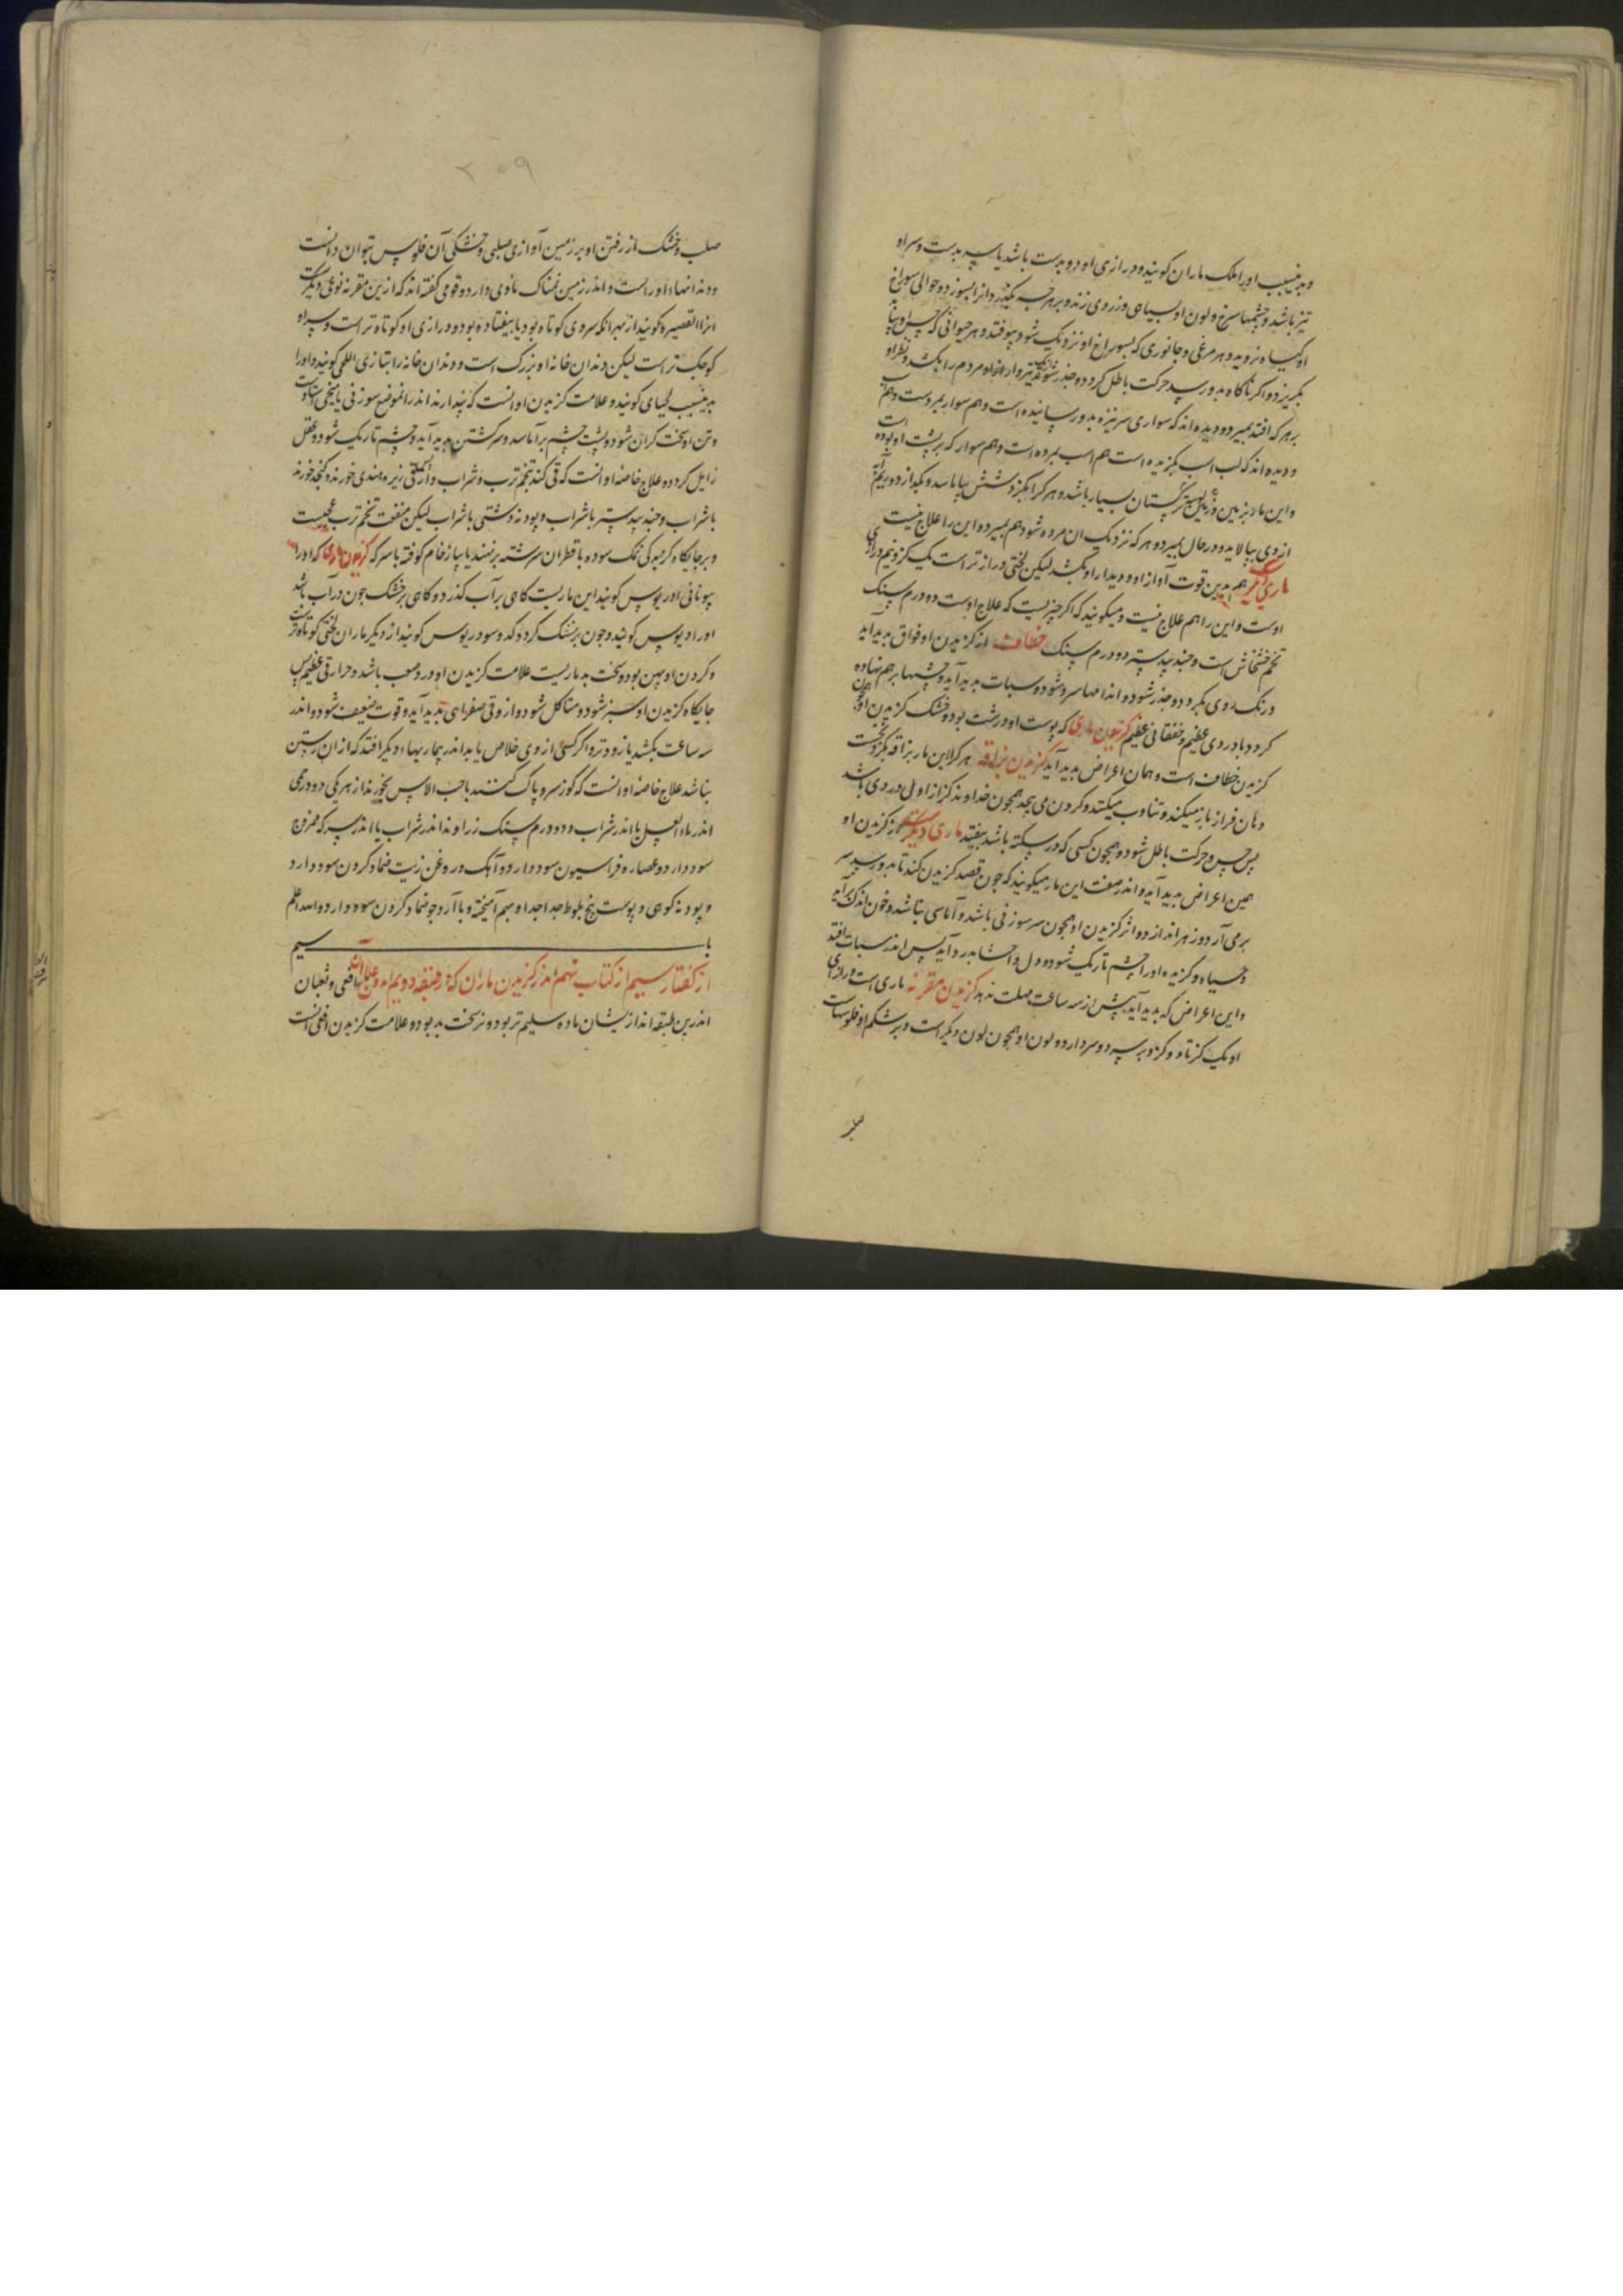 و بدین سبب او را ملک ماران گویند و درازی او دو بدست باشد یا سه بدست و سر او
تیز باشد و چشمها سرخ و لون او بسیاهی و زردی زند و بر هر چه بگذرد آنرا بسوزد و حوالی سوراخ
او کیاه نروید و هر مرغی و جانوری که بسوراخ او نزدیک شود بیوفتد و هر حیوانی که
بکریزد و اکر ناکاه بدو رسد حرکت باطل کردد و خدر شود و مردم را بکشد و نظر او
بر هر که افتد بمیرد و دیده اند که سواری سر نیزه بدو رسانیده است و هم سوار بمردست و هم اسب
و دیده اند که لب اسب بکزیده است هم اسب بمرده است و هم سوار که بر پشت او بوده است
و این مار بزمین ترکستان بسیار باشد و هر کرا بکزد تنش بیاماسد و بکدازد و ریم
از وی بپالاید و در حال بمیرد و هر که نزدیک ان مرده شود هم بمیرد و این را علاج نیست
ماری دیکر همبدین قوت آواز او و دیدار او بکشد لیکن لختی درازتر است یک کز و نیم درازی
اوست و این را هم علاج نیست و میکویند که اکر چیزیست که علاج اوست دو درم سنک
تخم خشخاش است و جندبیدستر دو درم سنک خطاف از کزیدن او فواق بدید آید
و رنک روی بکردد و خدر شود و اندامها سرد شود و سبات بدید آید و چشمها بر هم نهاده
کردد با دردی عظیم و خفقانی عظیم کزیدن ماری که پوست او درشت بود و خشک کزیدن او
کزیدن خطاف است و همان اعراض بدید آید کزیدن بزاقه هر کرا این مار بزاقه بکزد نخست
دهان فراز باز میکند و تثاوب میکند و کردن می پیچد همچون خداوند کزاز اول دردی باشد
پس حس و حرکت باطل شود و همچون کسی که در سکته باشد بیفتد ماری دیکر از کزیدن او
همین اعراض بدید آید و اندر صفت این مار میکویند که چون قصد کزیدن کند تا بدو رسد سر
برمی آرد و زهر اندازد و اثر کزیدن او همچون سر سوزنی باشد و آماسی نباشد و خون اندک برآید
و سیاه و کزیده او را چشم تاریک شود و دل و احشا بدرد آید پس اندر سبات افتد
و این اعراض که بدید آید بیش از سه ساعت مهلت ندهد کزیدن مقرنه ماری است درازی
او یک کز تا دو کز و بر سر دو سر دارد و لون او همچون لون دیکر است و بر شکم او فلوسهاست
صلب
۲۵۹
صلب و خشک از رفتن او بر زمین آوازی صلبی و خشکی آن فلوس بتوان دانست
و دندانها او راست و اندر زمین نمناک ماوی دارد و قومی گفته اند که ازین مقرنه نوعی دیکرست
انرا القصیره کویند از بهر انکه سروی کوتاه بود یا بیفتاده بود و درازی او کوتاه تر است و سر او
کوچک تر است لیکن دندان خانه او بزرک است و دندان خانه را بتازی اللحی کویند و او را
بدین سبب لحیای کویند و علامت کزیدن او انست که پندارند اندر انموضع سوزنی یا میخی استاده است
و تن او سخت کران شود و پشت چشم برآماسد و سر کشتن بدید آید و چشم تاریک شود و عقل
زایل کردد و علاج خاصهٔ او انست که قی کند بتخم ترب و شراب و زیره هندی خورند و کنجد خورند
با شراب و جندبیدستر با شراب و پودنه دشتی با شراب لیکن منفعت تخم ترب عجیبست
و بر جایکاه کزیدکی نمک سوده با قطران سرشته برنهند یا پیاز خام کوفته با سرکه کزیدن ماری که او را
بیونانی ادریوس کویند این ماریست کاهی بر آب کذرد و کاهی بر خشک چون در آب باشد
او را ادریوس کویند و چون بر خشک کردد کدوسودریوس کویند از دیکر ماران لختی کوتاه تر
و کردن او پهن بود و سخت بد ماریست علامت کزیدن او درد صعب باشد و حرارتی عظیم پس
جایکاه کزیدن او سبز شود و متاکل شود و دوار و قی صفرایی بدید آید و قوت ضعیف شود و اندر
سه ساعت بکشد یا زودتر و اکر کسی از وی خلاص یابد اندر بیماریهاء دیکر افتد که از ان رستن
نباشد علاج خاصهٔ او انست که کوز سرو پاک کنند با حب الاس بخورند از هر یکی دو درمی
اندر ماء العسل یا اندر شراب و دو درم سنک زراوند اندر شراب یا اندر سرکه ممزوج
سود دارد و عصاره فراسیون سود دارد و آهک در روغن زیت ضماد کردن سود دارد
و پودنه کوهی و پوست بیخ بلوط جدا جدا و بهم آمیخته و با آرد جو ضماد کردن سود دارد والله اعلم
باب سیم
از کفتار سیم از کتاب نهم اندر کزیدن ماران که از طبقه دویم اند و علاج آن افعی و ثعبان
اندرین طبقه اند از یشان ماده سلیم تر بود و نر سخت بد بود و علامت کزیدن افعی انست